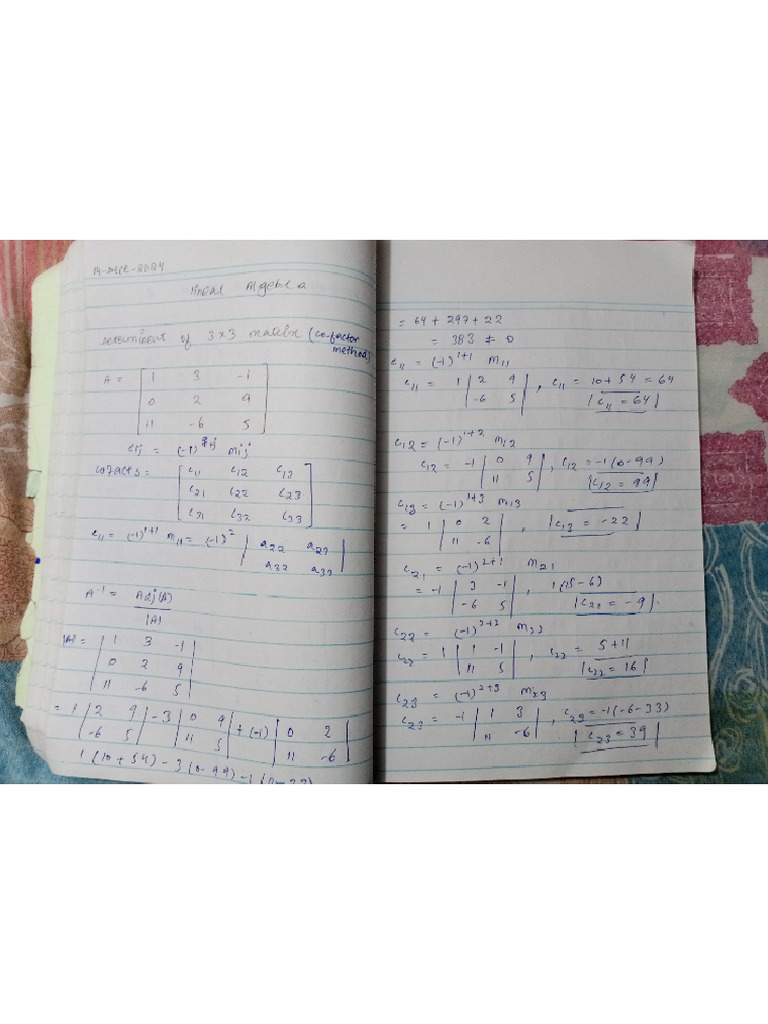 14-Dec-2024
linear Algebra
determinent of 3x3 matrix (co-factor
method)
A = [ 1 3 -1
0 2 9
11 -6 5 ]
cij = (-1)^i+j Mij
cofacts = [ c11 c12 c13
c21 c22 c23
c31 c32 c33 ]
c11 = (-1)^1+1 M11 = (-1)^2 | a22 a23
a32 a33 |
A^-1 = Adj(A)
|A|
|A| = | 1 3 -1
0 2 9
11 -6 5 |
= 1 | 2 9 | - 3 | 0 9 | + (-1) | 0 2 |
-6 5 | 11 5 | 11 -6 |
1 (10 + 54) - 3 (0 - 99) - 1 (0 - 22)
= 64 + 297 + 22
= 383 ≠ 0
c11 = (-1)^1+1 M11
c11 = 1 | 2 9 | , c11 = 10 + 54 = 64
-6 5 | |c11 = 64|
c12 = (-1)^1+2 M12
c12 = -1 | 0 9 | , c12 = -1(0-99)
11 5 | |c12 = 99|
c13 = (-1)^1+3 M13
= 1 | 0 2 | , |c13 = -22|
11 -6 |
c21 = (-1)^2+1 M21
= -1 | 3 -1 | , 1(15-6)
-6 5 | |c21 = -9|.
c22 = (-1)^2+2 M22
c22 = 1 | 1 -1 | , c22 = 5+11
11 5 | |c22 = 16|
c23 = (-1)^2+3 M23
c23 = -1 | 1 3 | , c23 = -1(-6-33)
11 -6 | |c23 = 39|